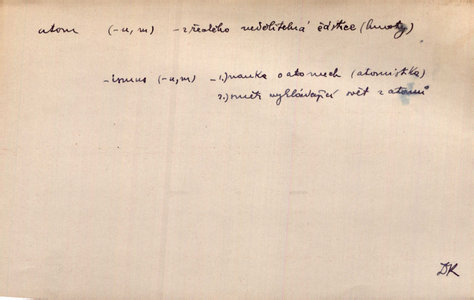 atom (-u, m) - z řeckého nedělitelná částice (hmoty)
-ismus (-u, m) - 1.) nauka o atomech (atomistika)
2.) směr vykládající svět z atomů
DK